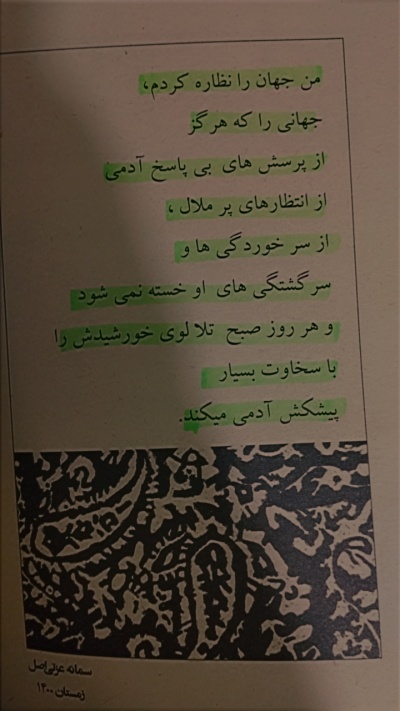 من جهان را نظاره کردم،
جهانی را که هرگز
از پرسش های بی پاسخ آدمی
از انتظارهای پر ملال ،
از سر خوردگی ها و
سرگشتگی های او خسته نمی شود
و هر روز صبح تلالوی خورشیدش را
با سخاوت بسیار
پیشکش آدمی میکند.
سمانه عزتی اصل
زمستان ۱۴۰۰